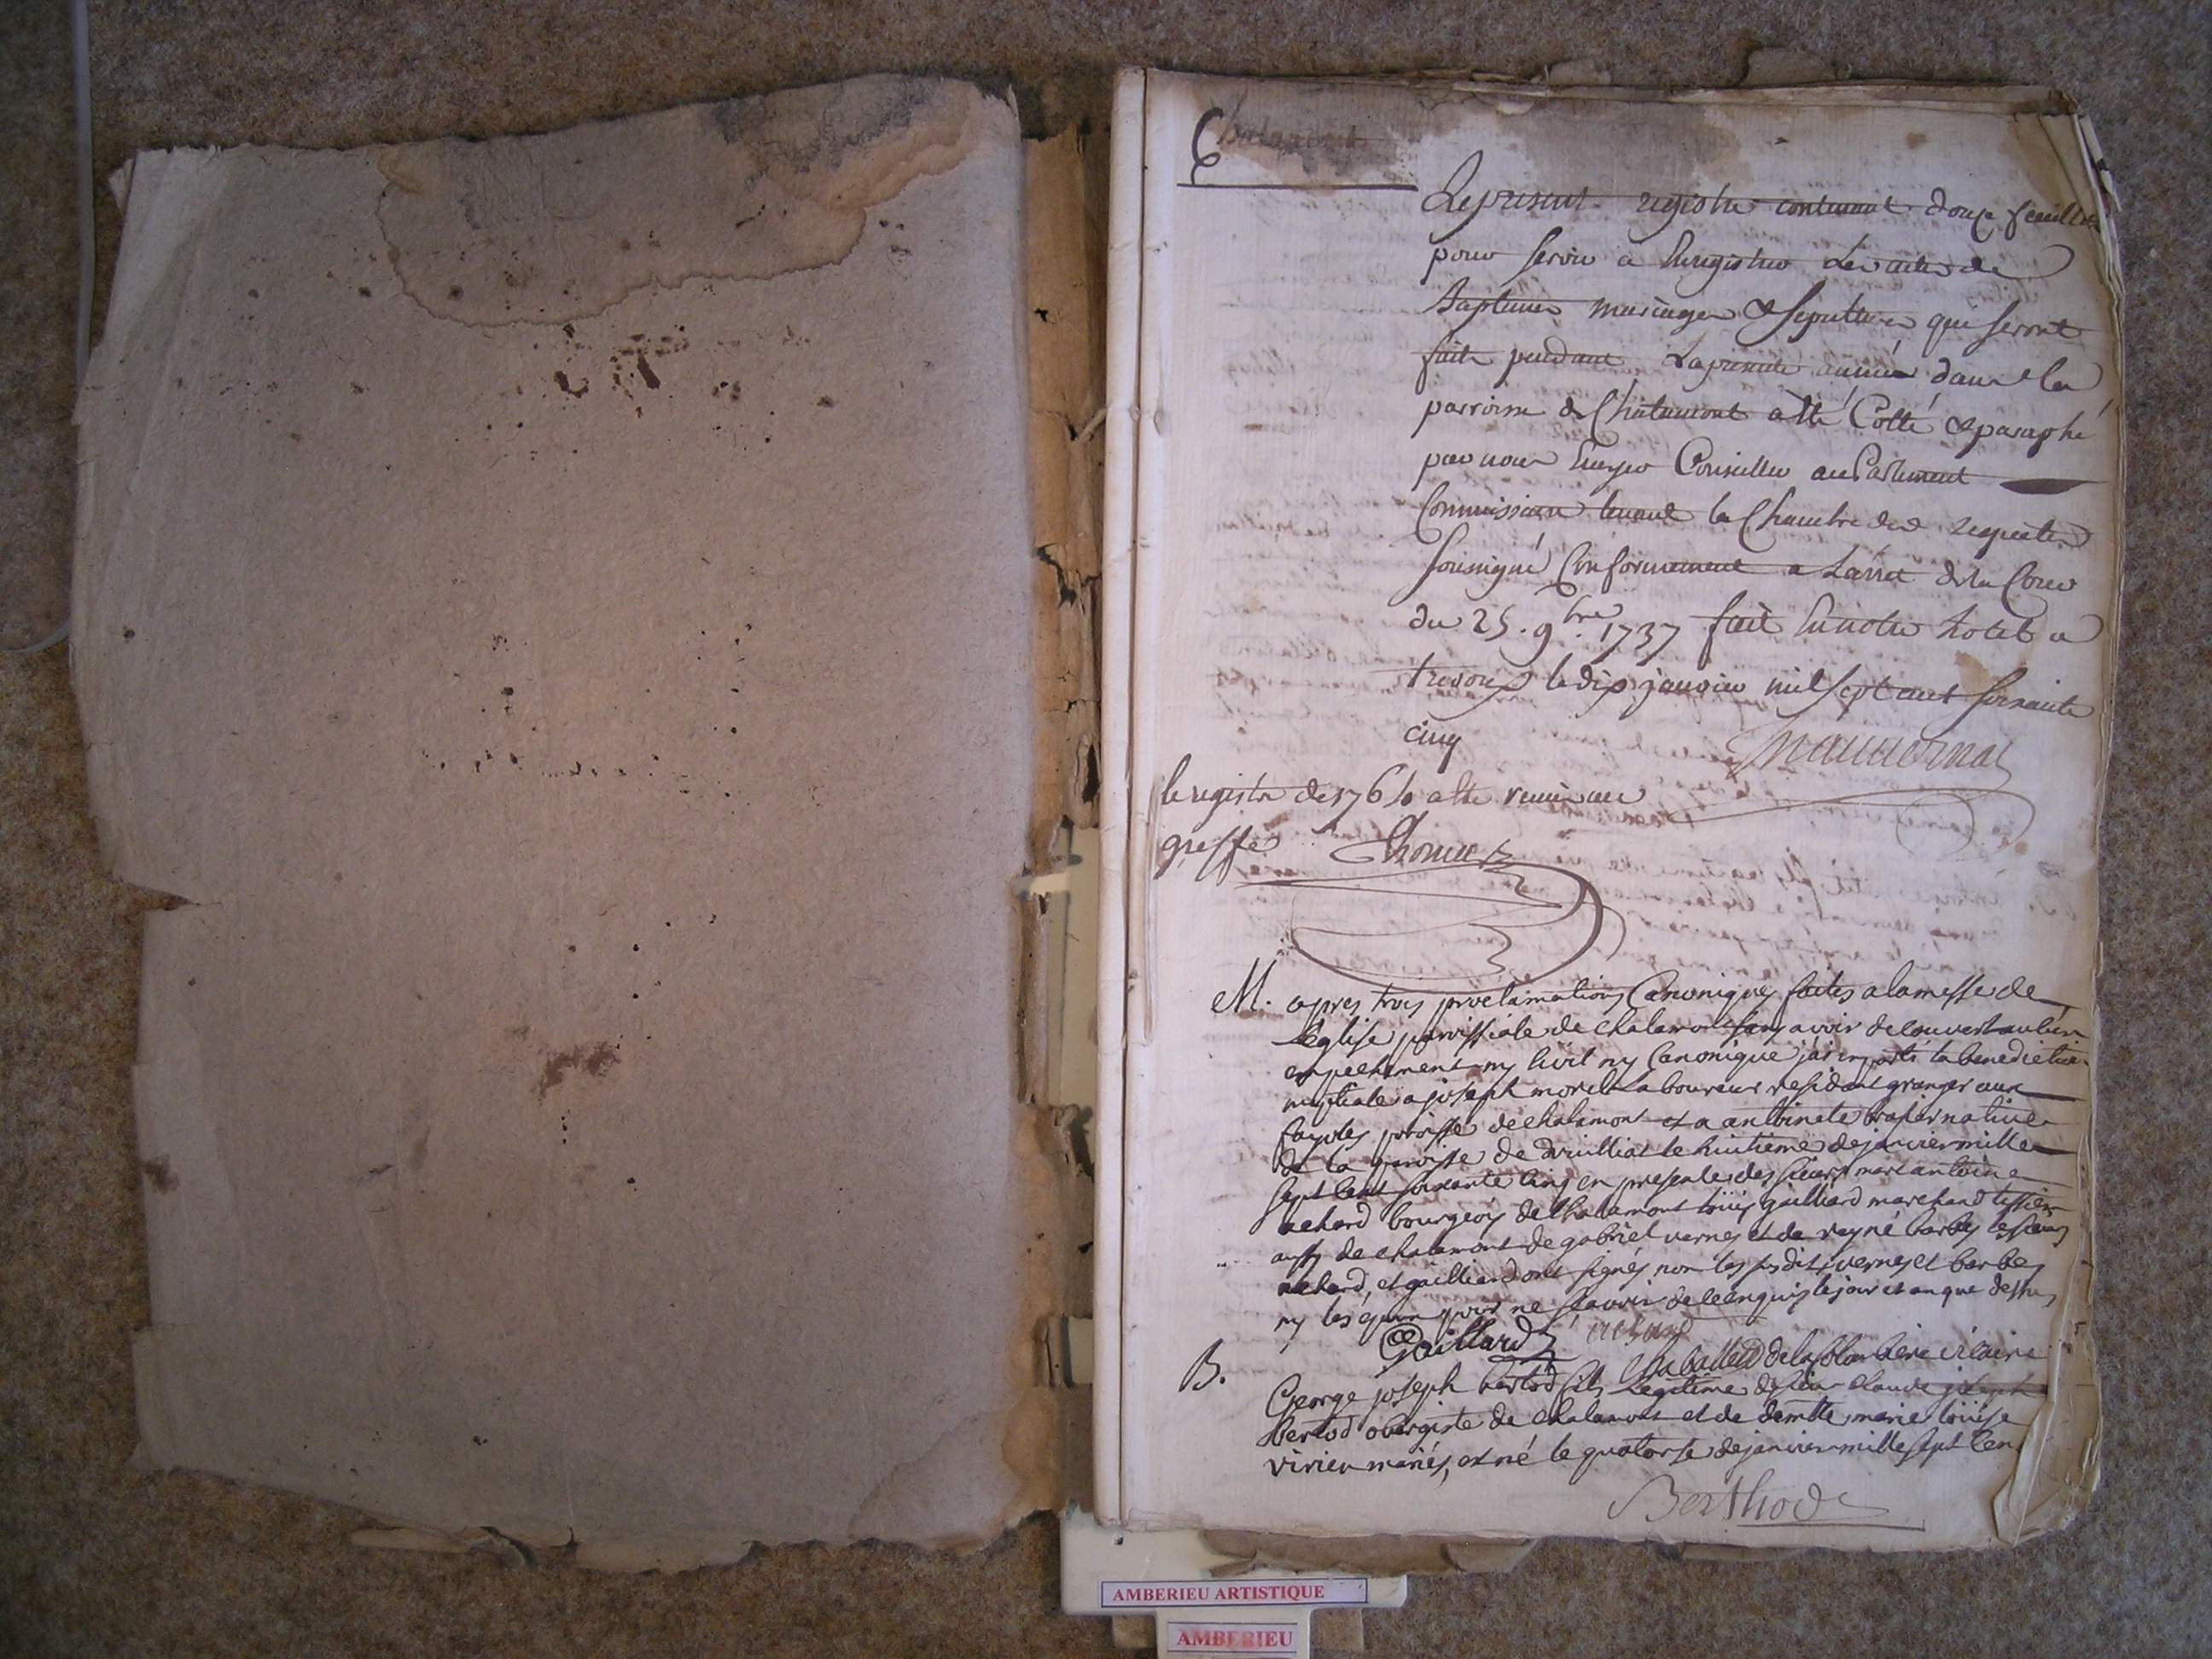 Chalamont
Le present registre contenant douze feuillets
pour servir a Enregistrer les actes de
Baptemes mariages & sepultures qui seront
faits pendant la presente année dans la
parroisse de Chalamont a été Cotté & paraphé
par nous Ecuyer Conseiller au Parlement
Commissaire tenant la Chambre des requetes
soussigné Conformement a Larret de la Cour
du 25. 9bre 1737 fait En notre hotel a
trevoux le dix janvier mil sept cent soixante
cinq
le registre de 1764 a été remis au
greffe
M. apres trois proclamations Canoniques faites a la messe de
l'eglise paroissiale de chalamont sans avoir decouvert aucun
empechement ny civil ny Canonique j'ai imparti la benediction
nuptiale a joseph morel laboureur residant granger aux
paroisse de chalamont et a antoinete native
de la paroisse de druilliat le huitieme de janvier mille
sept cent soixante cinq en presence des sieurs marc antoine
achard bourgeois de Chalamont loüis gailliard marchand tissier
aussy de chalamont de gabriel vernes et de reyné barbes les sieurs
achard, et gailliard ont signés non les susdits vernes et barbes
ny les epoux pour ne sçavoir de ce enquis le jour et an que dessus
Gaillard achard
B.
George joseph bertod fils legitime de sieur claude joseph
bertod obergiste de chalamont et de demlle marie loüise
virieu mariés, est né le quatorse de janvier mille sept cen
Berthod
AMBERIEU ARTISTIQUE
AMBERIEU